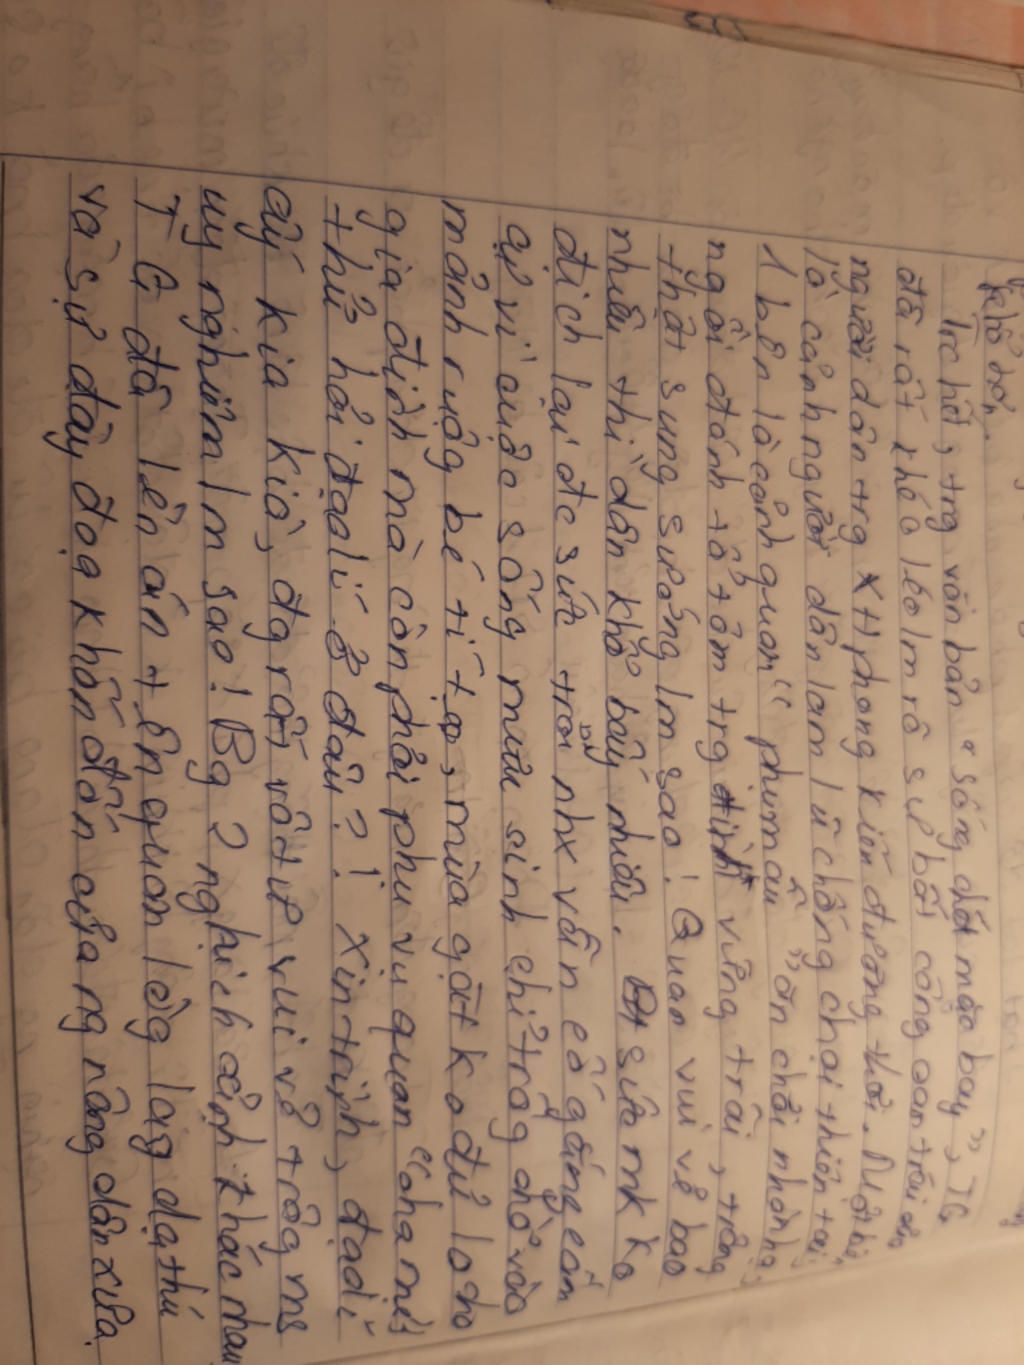 khổ hơn.
Trc hết, trg văn bản "sống chết mặc bay", TG
đã rất khéo léo lm rõ sự bất công oan trái của
người dân trg XH phong kiến đương thời. Một bên
là cảnh người dân lam lũ chống chọi thiên tai,
1 bên là cảnh quan "phụ mẫu" ăn chơi nhàn hạ,
ngồi đánh tổ tôm trg đình vững trãi, trông
thật sung sướng lm sao! Quan vui vẻ bao
nhiêu thì dân khổ bấy nhiêu. sức mk ko
địch lại đc sức trời nhx vẫn cố gắng cầm
cự vì cuộc sống mưu sinh chỉ trông chờ vào
mảnh ruộng bé tí tẹo, mùa gặt ko đủ lo cho
gia đình mà còn phải phụ vụ quan "cha mẹ"
thử hỏi đạo lí ở đâu?! Xin trình, đạo lí
ấy kia kìa, đg rất vất vả vui vẻ trông ms
uy nghiêm lm sao! Bg 2 nghịch cảnh khác nhau
TG đã lên án tên quan lòg lang dạ thú
và sự đày đoạ khốn đốn của ng nông dân xưa.